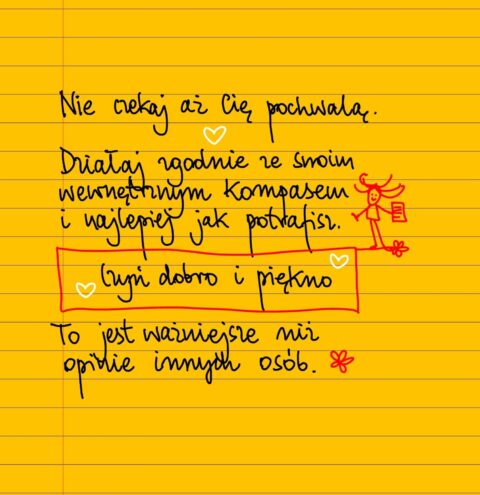 Nie czekaj aż Cię pochwalą.
Działaj zgodnie ze swoim
wewnętrznym kompasem
i najlepiej jak potrafisz.
Czyń dobro i piękno
To jest ważniejsze niż
opinie innych osób.